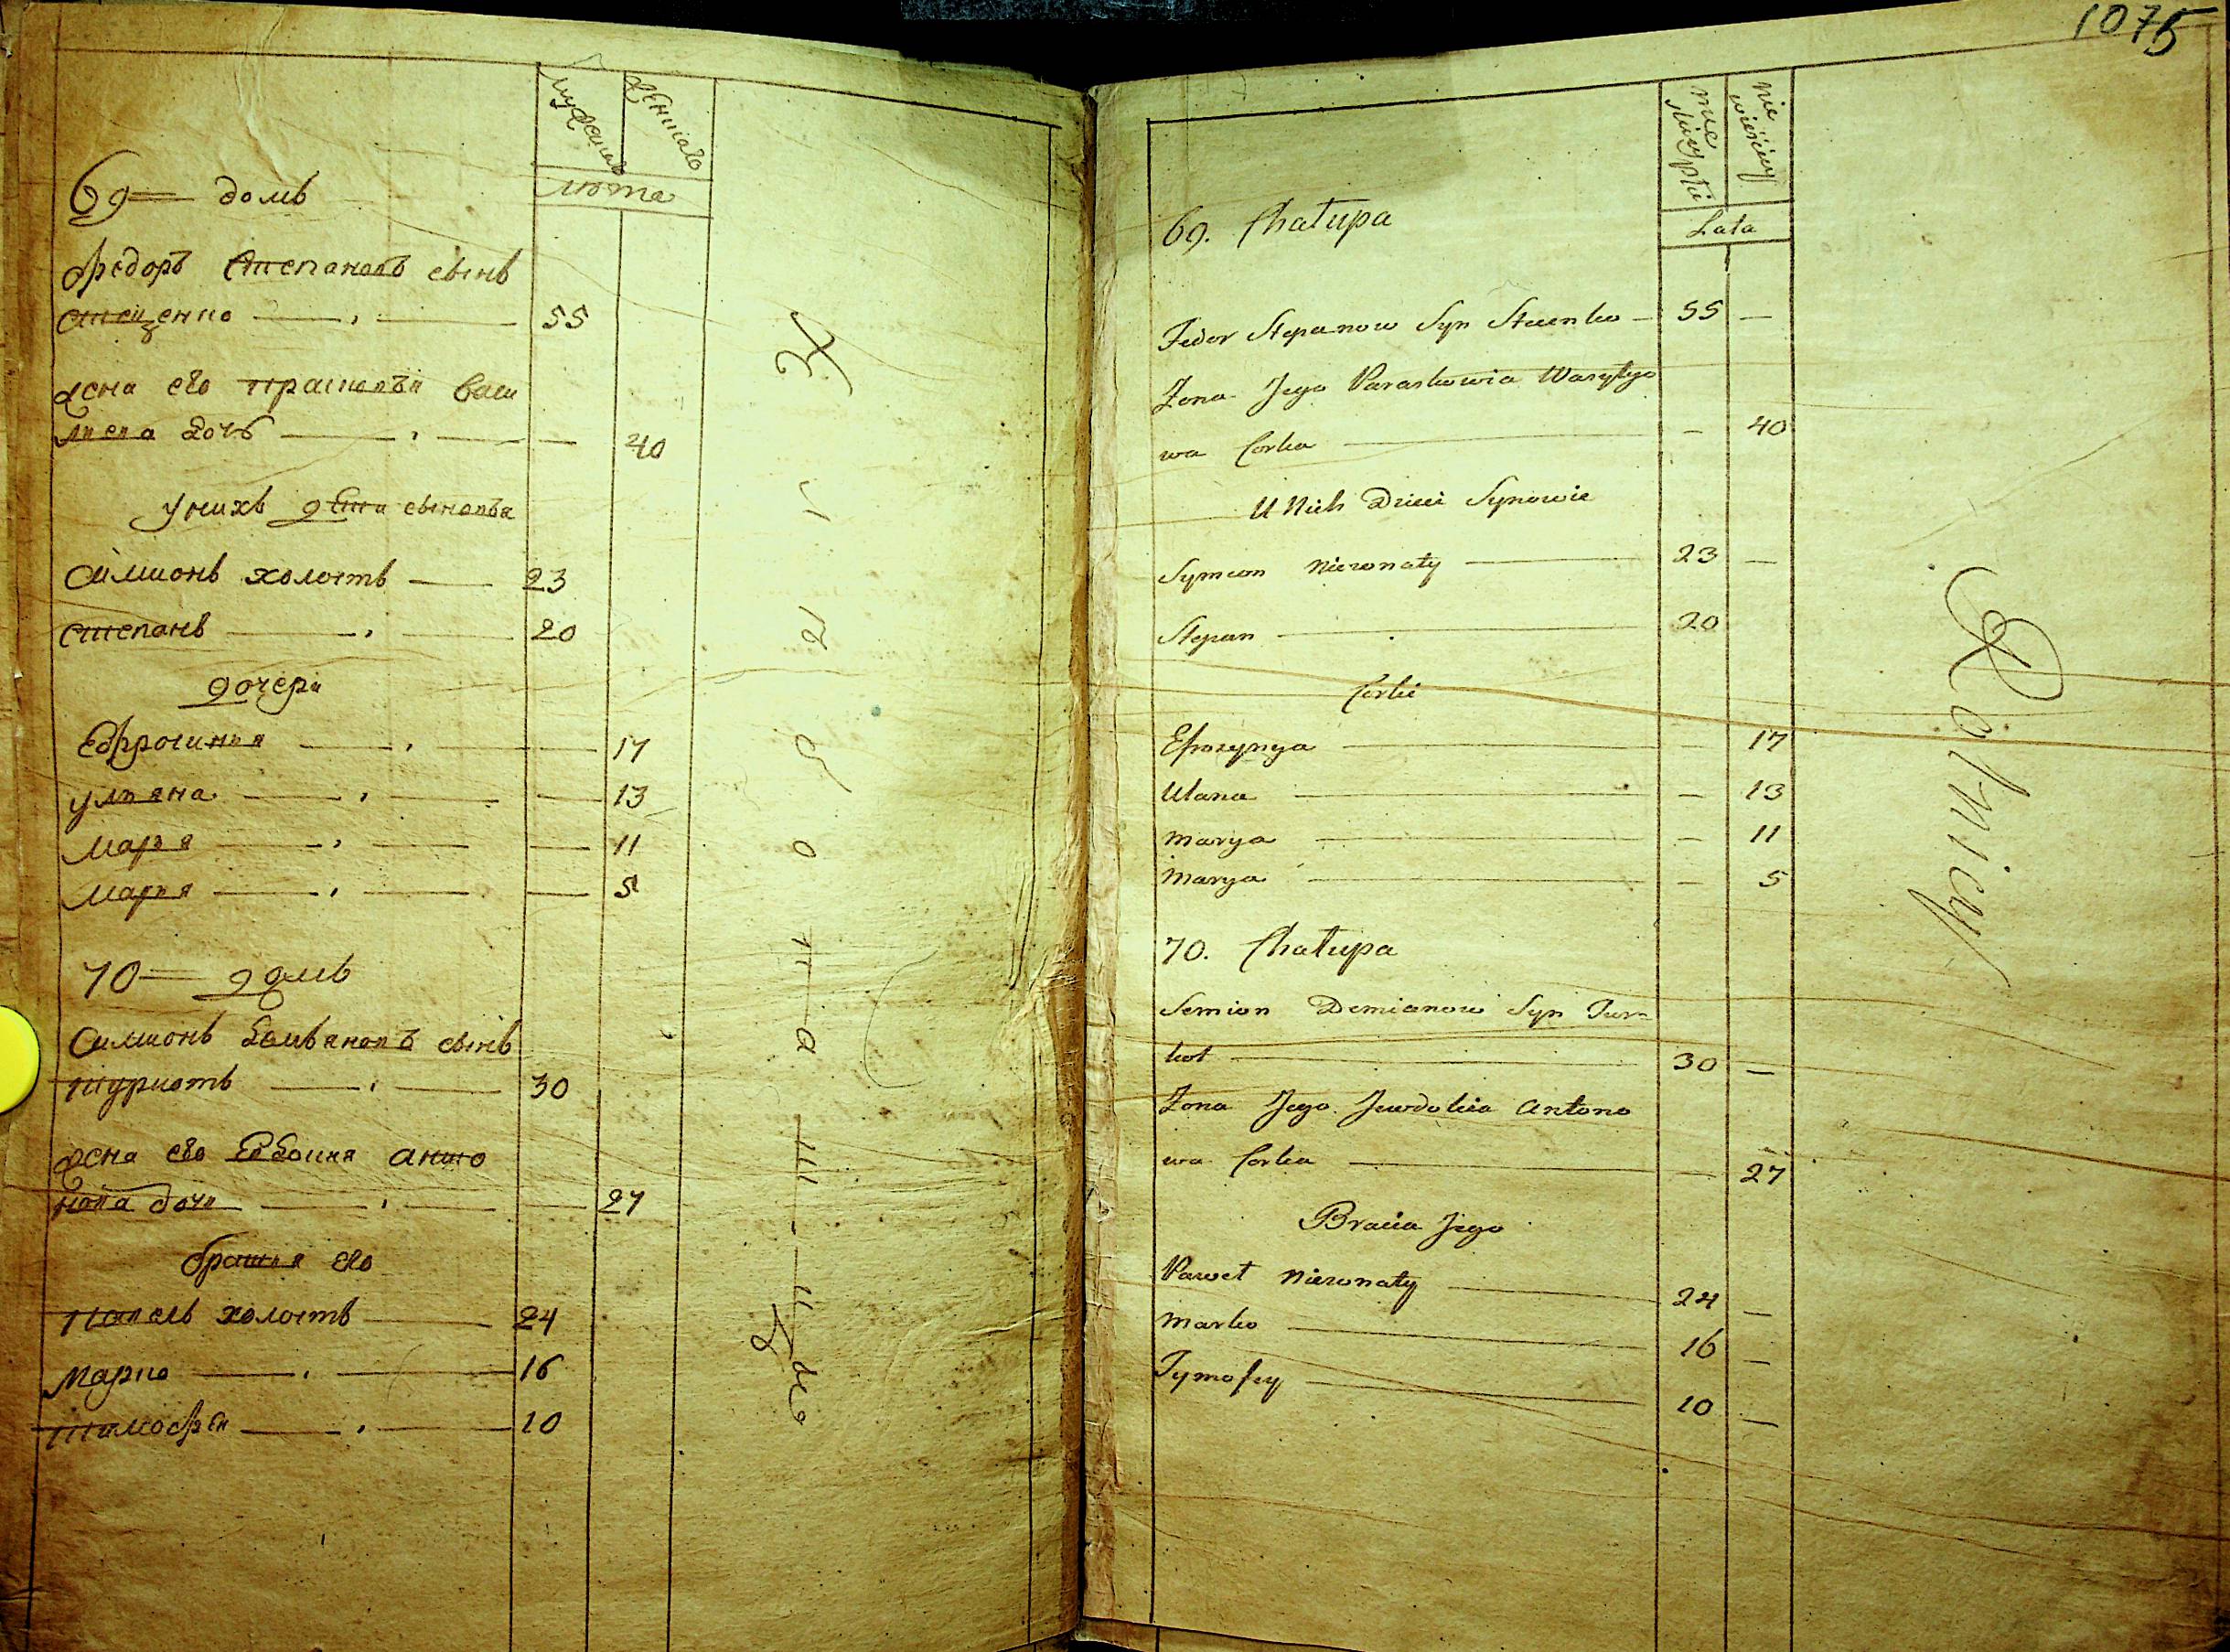 мужеска
женска
лѣта
69 домъ
Федоръ Степановъ сынъ
Стеценко 55
жена его Прасковiя Васи
лиева дочь 40
у нихъ дѣти сыновья
Симионъ холостъ 23
Степанъ 20
дочери
Ефросиния 17
Улияна 13
Маря 11
Мария 5
70 домъ
Симионъ Демьяновъ сынъ
Туркотъ 30
жена его Евдокия Анто
нова дочь 27
братия его
Павелъ холостъ 24
Марко 16
Тимофей 10
1075
Lata
69. Chałupa
Fedor Stepanow Syn Stecenko 55 —
Żona Jego Paraskowia Wasyly
wa Corka — 40
U Nich Dzieci Synowie
Symeon Nieżonaty 23 —
Stepan 20
Corki
Efrozynya 17
Ulana — 13
Marya — 11
Marya — 5
70. Chałupa
Semion Demianow Syn Tur
kot 30 —
Żona Jego Jewdokia Antono
wa Corka — 27
Bracia Jego
Paweł Nieżonaty 24 —
Marko 16 —
Tymofey 10 —
Rolnicy